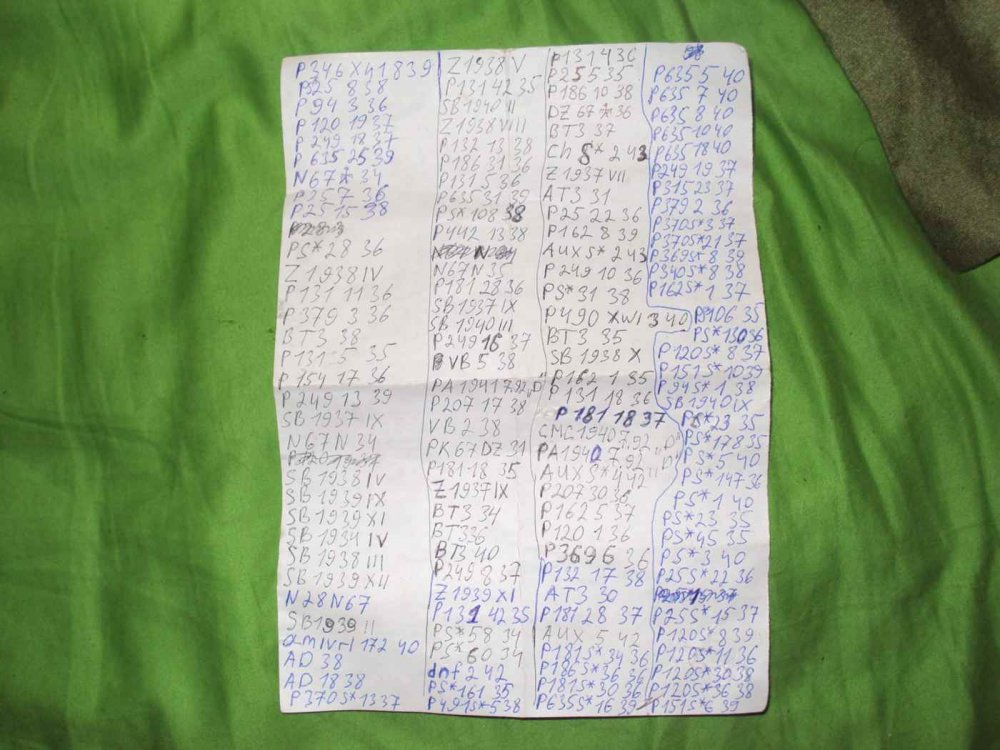 P346 X41 8 39
P25 8 38
P94 3 36
P120 19 37
P249 18 37
P635 25 39
N67* 34
P25 7 36
P25 15 38
PS*28 36
Z 1938 IV
P131 11 36
P379 3 36
BT3 38
P131 5 35
P154 17 36
P249 13 39
SB 1937 IX
N67N 34
SB 1938 IV
SB 1939 IX
SB 1939 XI
SB 1934 IV
SB 1938 III
SB 1939 XII
N28N67
SB1939 II
amivrl 172 40
AD 38
AD 18 38
P370S*13 37
Z 1938 V
P131 42 35
SB 1940 II
Z 1938 VIII
P132 13 38
P186 31 36
P131 5 36
P635 31 39
PS*108 38
P442 13 38
N67N 35
P181 28 36
SB 1937 IX
SB 1940 III
P249 16 37
VB 5 38
PA 1941 7.92 "D"
P207 17 38
VB 2 38
PK 67 DZ 31
P181 18 35
Z 1937 IX
BT3 34
BT3 36
BT3 40
P249 8 37
Z 1939 XI
P131 42 35
PS*58 34
PS*60 34
dnf 2 42
PS*161 35
P491S*5 38
P131 4 36
P25 5 35
P186 10 38
DZ 67 * 36
BT3 37
Ch S* 2 43
Z 1937 VII
AT3 31
P25 22 36
P162 8 39
AUX S* 2 43
P249 10 36
PS*31 38
P490 XWI 3 40
BT3 35
SB 1938 X
P162 1 35
P131 18 36
P181 18 37
CMC 1940 7.92 "D"
PA 1940 7.92 "D"
AUX S*4 42
P207 30 36
P162 5 37
P120 1 36
P369 6 36
P132 17 38
AT3 30
P181 28 37
AUX 5 42
P181S*34 36
P186S*36 36
P181S*30 36
P635S*16 39
P635 5 40
P635 7 40
P635 8 40
P635 10 40
P635 18 40
P249 19 37
P315 23 37
P379 2 36
P370S*3 37
P370S*21 37
P369S*8 39
P340S*8 38
P162S*1 37
P106 35
PS*130 36
P120S*8 37
P151S*10 39
P94S*1 38
SB 1940 IX
PS*23 35
PS*178 35
PS*5 40
PS*147 36
PS*1 40
PS*23 35
PS*45 35
PS*3 40
P25S*22 36
P25S*15 37
P120S*8 39
P120S*11 36
P120S*30 38
P120S*36 38
P151S*6 39